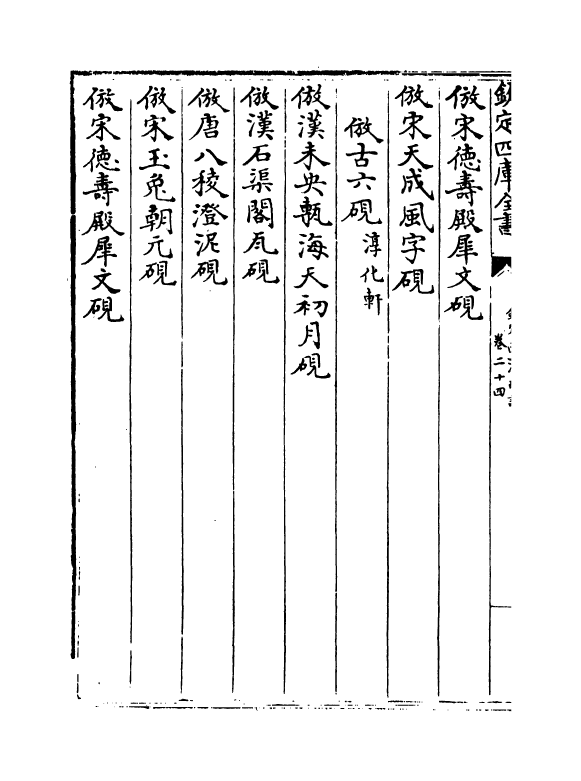 欽定四庫全書
卷二十四
倣宋德壽殿犀文硯
倣宋天成風字硯
倣古六硯 淳化軒
倣漢未央甎海天初月硯
倣漢石渠閣瓦硯
倣唐八稜澄泥硯
倣宋玉兔朝元硯
倣宋德壽殿犀文硯